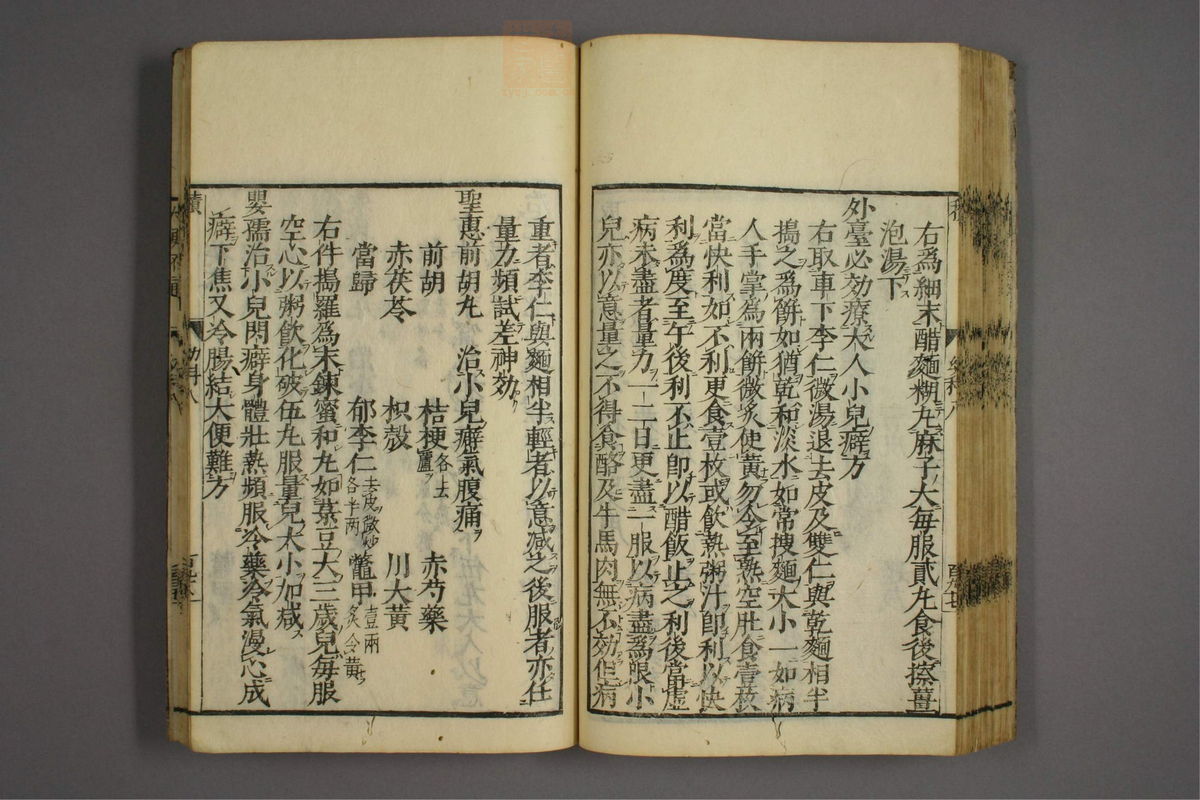 右爲細末醋麵糊丸麻子大毎服貳丸食後捺薑
泡湯下
外臺必効療大人小兒癖方
右取車下李仁微湯退去皮及雙仁與乾麵相半
搗之爲餅如猶乾和淡水如常搜麵大小一如病
人手掌爲兩餅微炙使黄勿令至熱空肚食壹枚
當快利如不利更食壹枚或飲熱粥汁卽利以快
利爲度至午後利不止卽以醋飯止之利後當虚
病未盡者量力一二日更盡一服以病盡爲限小
兒亦以意量之不得食酪及牛馬肉無不効但病
重者李仁與麵相半輕者以意減之後服者亦任
量力頻試差神効
聖惠前胡丸 治小兒癖氣腹痛
前胡 桔梗各去蘆 赤芍藥
赤茯苓 枳殼 川大黄
當歸 郁李仁去皮微炒各半两 鼈甲壹兩炙令黄
右件搗羅爲末鍊蜜和丸如菉豆大三歲兒毎服
空心以粥飲化破伍丸服量兒大小加减
嬰孺治小兒閃癖身體壯熱頻服冷藥冷氣漫心成
癖下焦又冷腸結大便難方